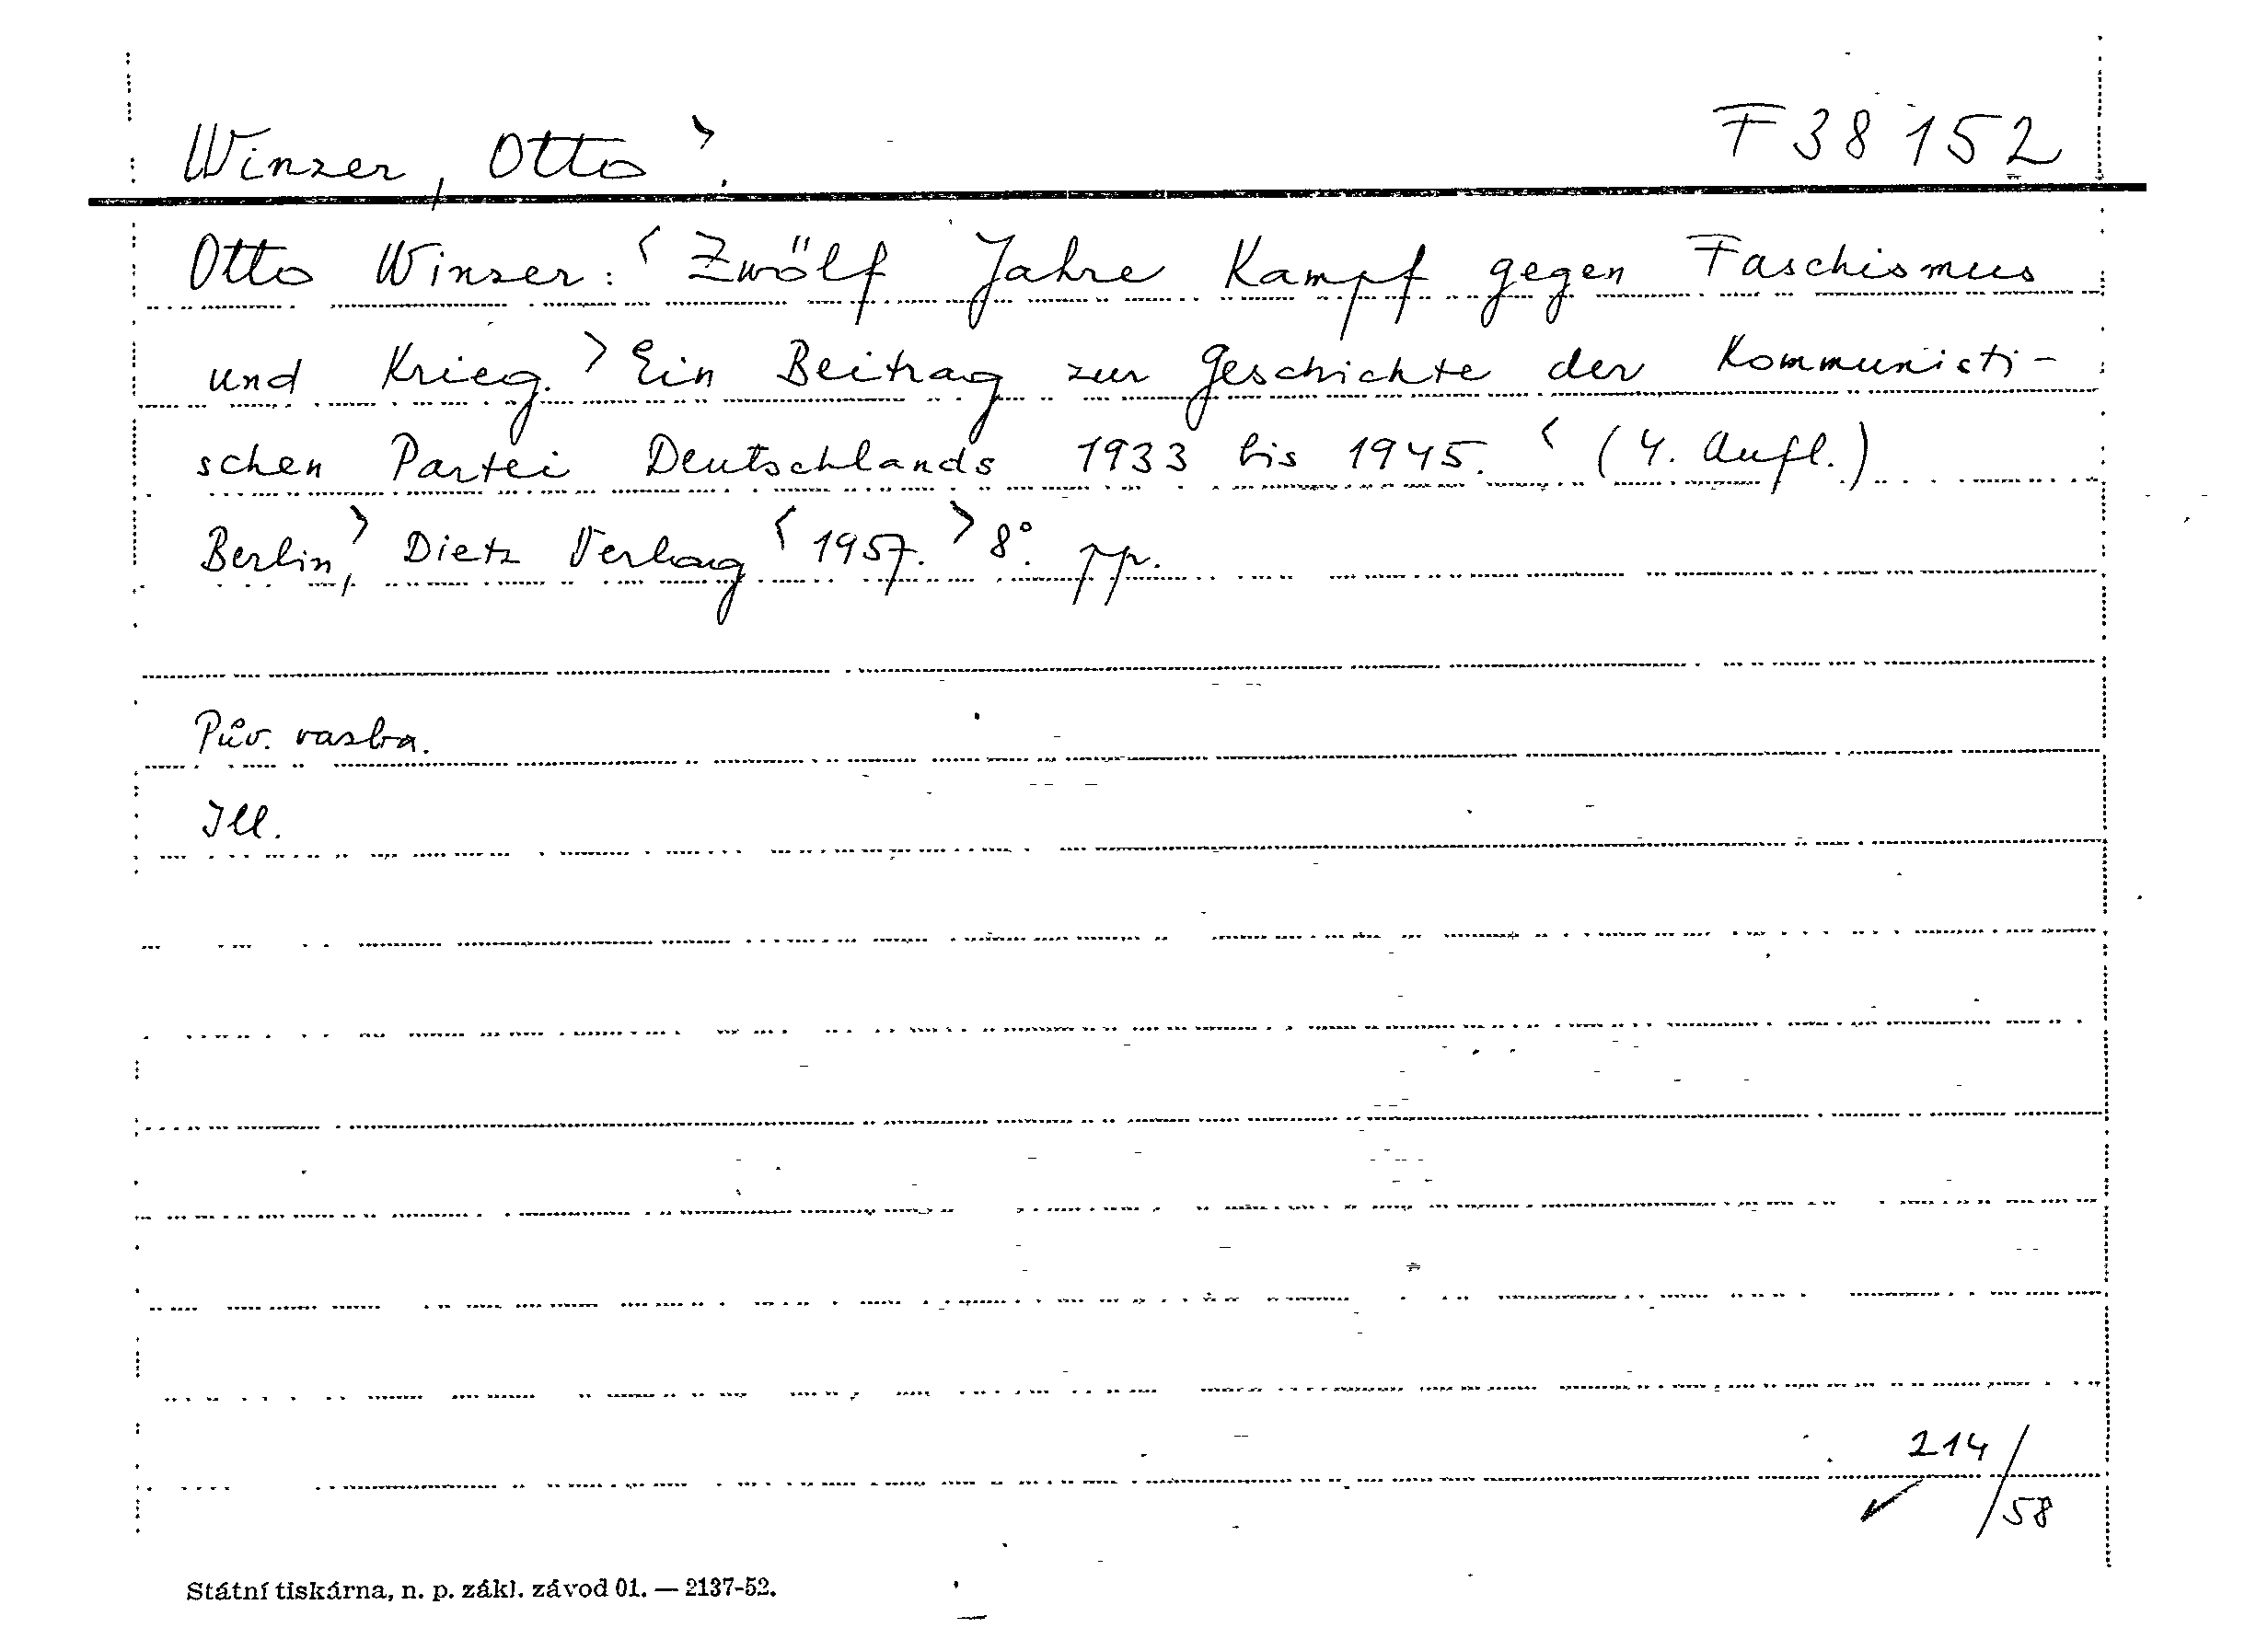 Winzer, Otto >. F 38152
Otto Winzer: < Zwölf Jahre Kampf gegen Faschismus
und Krieg. > Ein Beitrag zur Geschichte der Kommunisti-
schen Partei Deutschlands 1933 bis 1945. < (4. Aufl.)
Berlin, > Dietz Verlag < 1957. > 8°. pp.
Pův. vazba.
Ill.
214/58
Státní tiskárna, n. p. zákl. závod 01. — 2137-52.